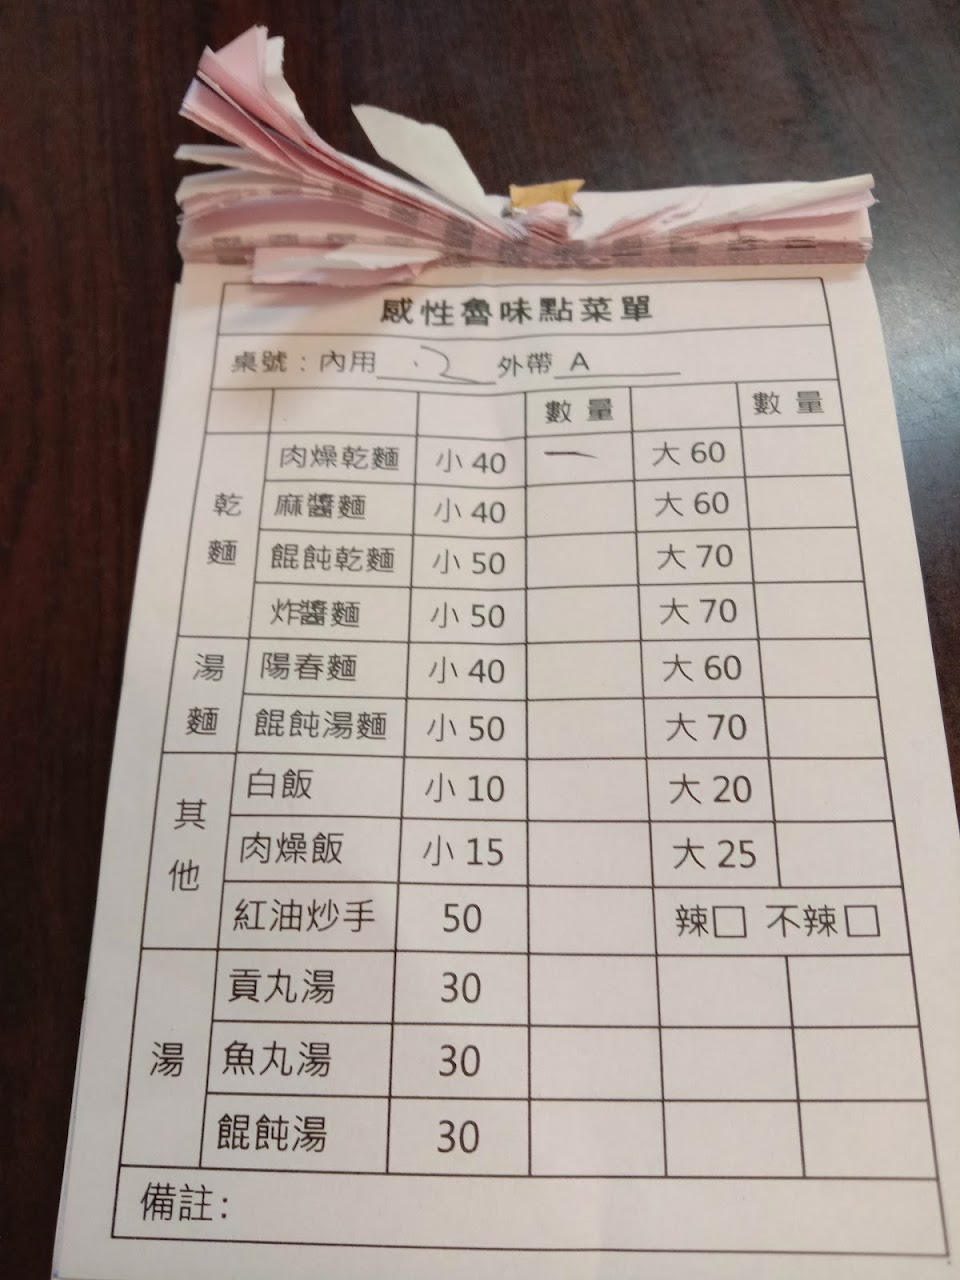 感性魯味點菜單
桌號：內用 2 外帶 A
數量 數量
乾麵
肉燥乾麵 小 40 一 大 60
麻醬麵 小 40 大 60
餛飩乾麵 小 50 大 70
炸醬麵 小 50 大 70
湯麵
陽春麵 小 40 大 60
餛飩湯麵 小 50 大 70
其他
白飯 小 10 大 20
肉燥飯 小 15 大 25
紅油炒手 50 辣□ 不辣□
湯
貢丸湯 30
魚丸湯 30
餛飩湯 30
備註：